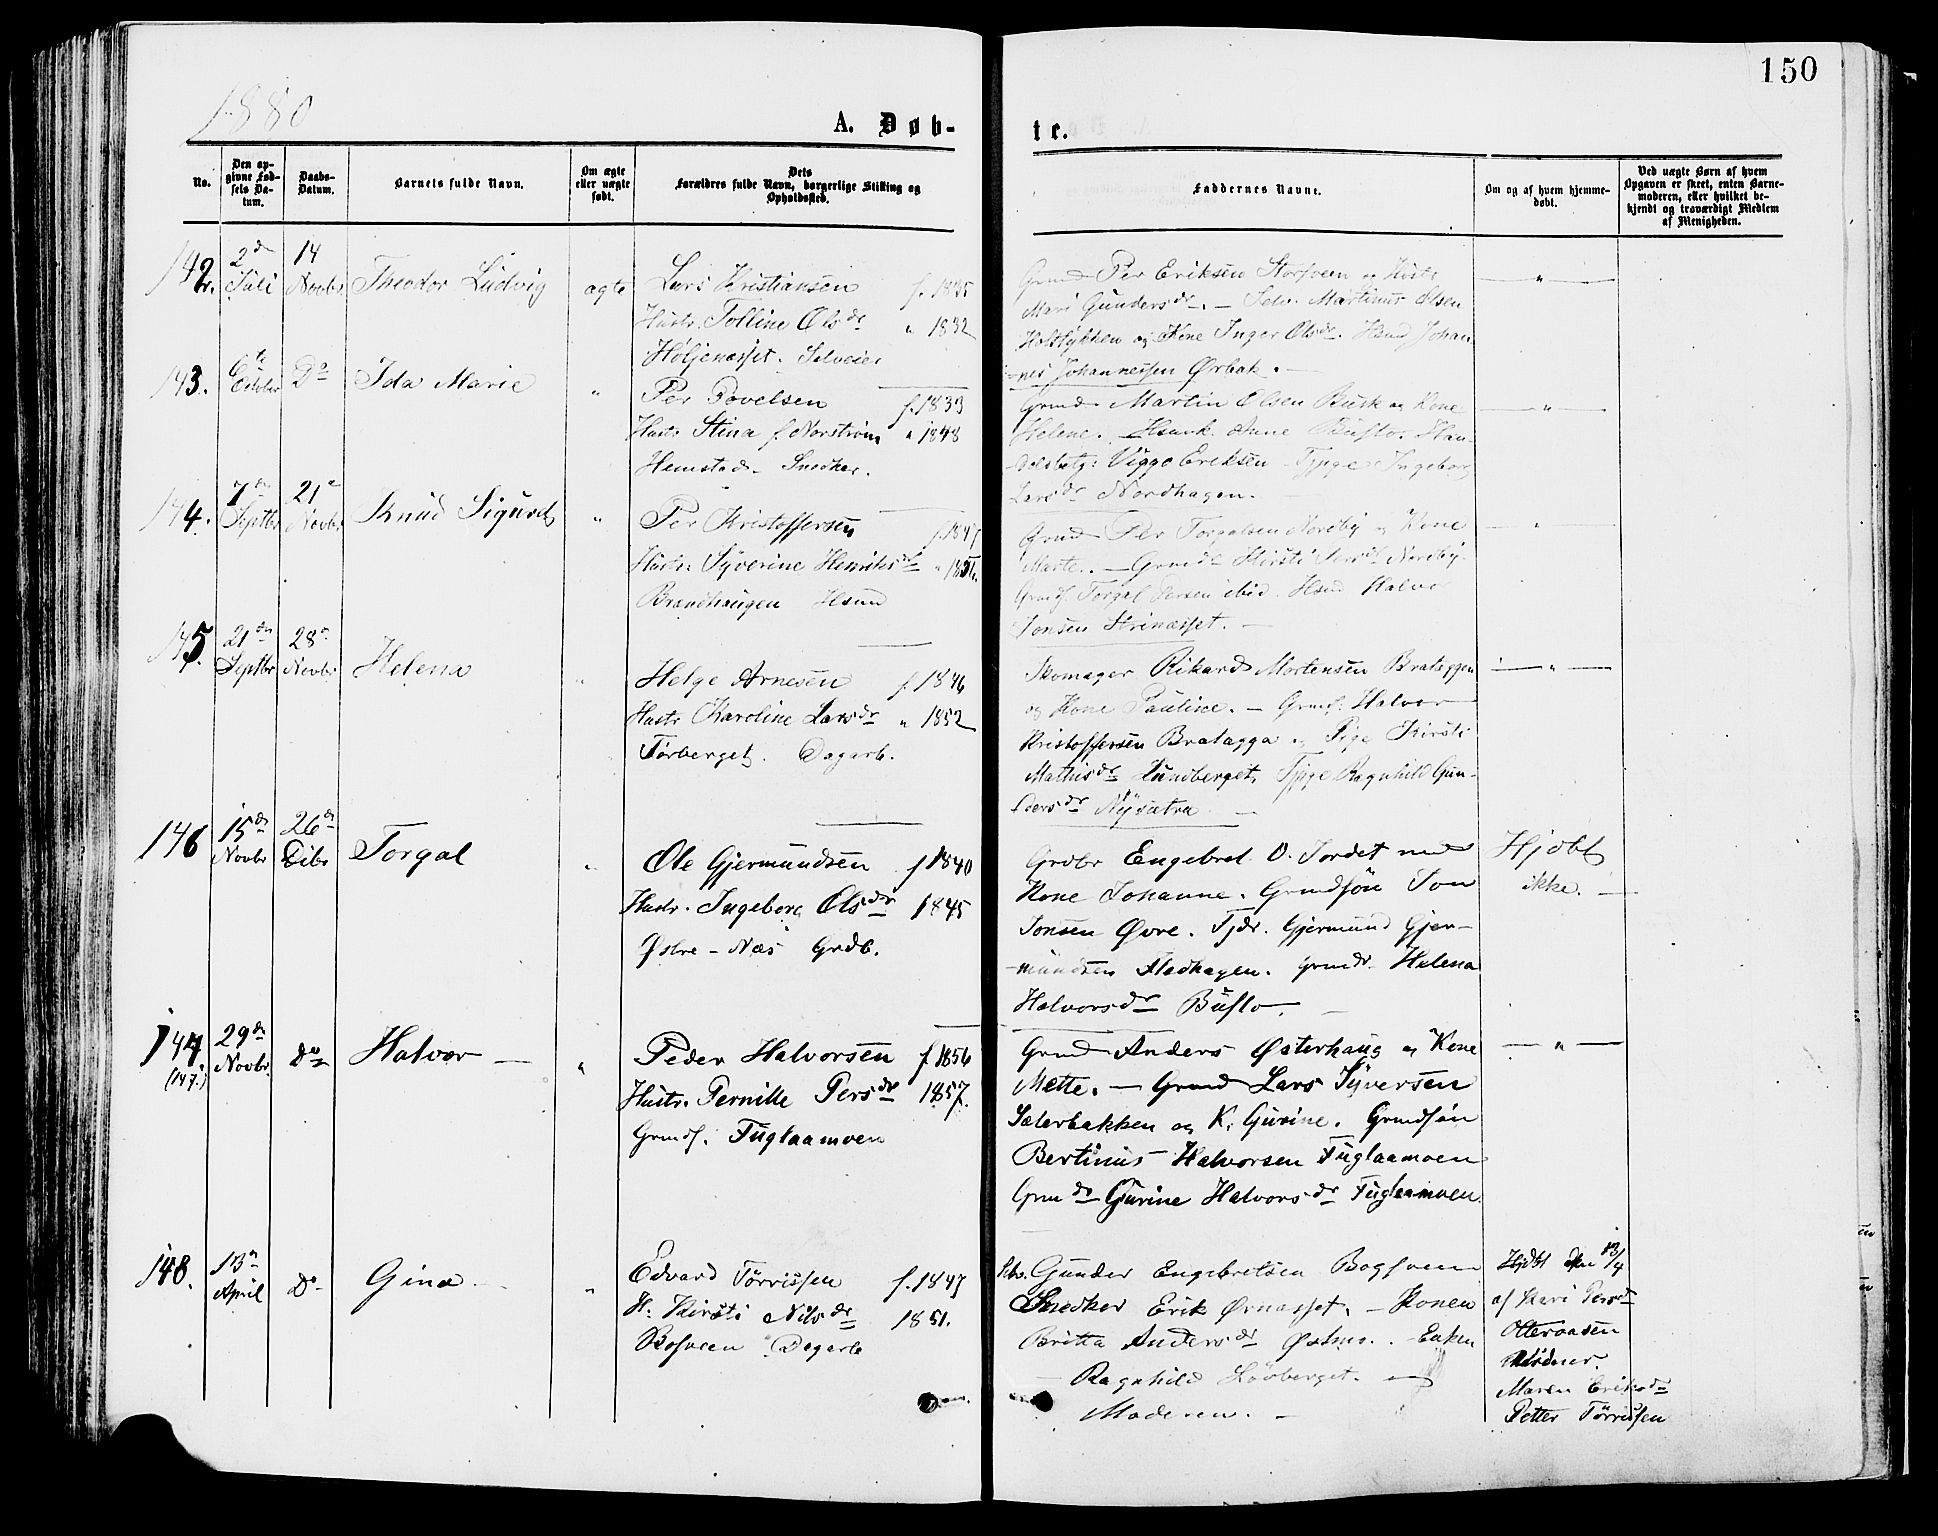 150
1880
A. Døb-
te.
No.
Den op-
givne Fød-
sels Da-
tum.
Daabs-
Datum.
Barnets fulde Navn.
Om ægte
eller uægte
født.
Dets
Forældres fulde Navn, borgerlige Stilling og
Opholdssted.
Faddernes Navne.
Om og af hvem hjemme-
døbt.
Ved uægte Børn af hvem
Opgaven er skeet, enten Barne-
moderen, eller hvilket be-
kjendt og troværdigt Medlem
af Menigheden.
142.
2den
Juli
14
Novbr
Theodor Ludvig
ægte
Lars Kristiansen f. 1835
Hustr. Tolline Olsdr " 1832
Holjenæsset. Selveier
Grmd Per Eriksen Storsveen og Hustr
Mari Gundersdr. — Selv. Martinus Olsen
Holtlykken og Kone Inger Olsdr. Hsmd Johan-
nes Johannessen Ørbak. —
— " —
143.
6te
Do
Ida Marie
"
Per Povelsen f. 1839
Hustr Stina f. Norstrøm " 1848
Hemstad - Snedker.
Grmd Martin Olsen Busk og Kone
Helene. Hsmk. Anne Buflo. Han-
delsbetj: Viggo Eriksen Tjpge Ingebor
Larsdr Nordhagen.
— " —
144.
7de
Septbr
21
Novbr
Knud Sigurd
"
Per Kristoffersen f. 1847
Hustr. Syverine Henriksdr "
Brandhaugen Hsmd
Grmd Per Torgalsen Noreby og Kone
Marte. — Grmdr Kirsti Persdr Noreby.
Grmds. Torgal Persen ibid. Hsmd Halvor
Jonsen Strinæsset. —
— " —
145.
21de
Septbr
28
Novbr
Helena
"
Helge Arnesen f. 1846
Hustr Karoline Larsdr " 1852
Førberget. Dagarb.
Skomager Rikard Mortensen Brataggen
og Kone Pauline. — Grmds. Halvor
Kristoffersen Bratagga og Pige Kirsti
Mathisdr Lundberget, Tjpge Ragnhild Gun-
dersdr Nysætra —
— " —
146
15de
Novbr
26de
Dcbr
Torgal
"
Ole Gjermundsen f 1840
Hustr. Ingeborg Olsdr 1845
Østre - Næs Grdb.
Grdbr Engebret O. Jordet med
Kone Johanne. Grmdsøn Jon
Jonsen Øvre. Tjdr. Gjermund Gjer-
mundsen Fladhagen. Grmdr. Helena
Halvorsdr Buflo. —
Hjdbt
ikke. —
147
(147.)
29de
Novbr.
Do
Halvor —
"
Peder Halvorsen f 1856
Hustr. Pernille Persdr 1857.
Grmds. Fuglaamoen
Grmd Anders Østerhaug og Kone
Mette. — Grmd Lars Syversen
Sæterbakken og K. Gurine. Grmdsøn
Bertinus Halvorsen Fuglaamoen
Grmdr Gurine Halvorsdr Fuglaamoen.
— " —
148.
13
April
Do
Gina —
"
Edvard Tørrissen f. 1847
H. Kirsti Nilsdr 1851.
Bogsveen Dagarb
Selv. Gunder Engebretsen Bogsveen
Snedker Erik Ørnæsset. — Konen
Britta Andersdr Enken
Ragnhild Løvberget. —
Moderen. —
Hjdbt den 13/4
af Kari Persdr
Otteraasen
Maren Eriksdr
Petter Tørrissen